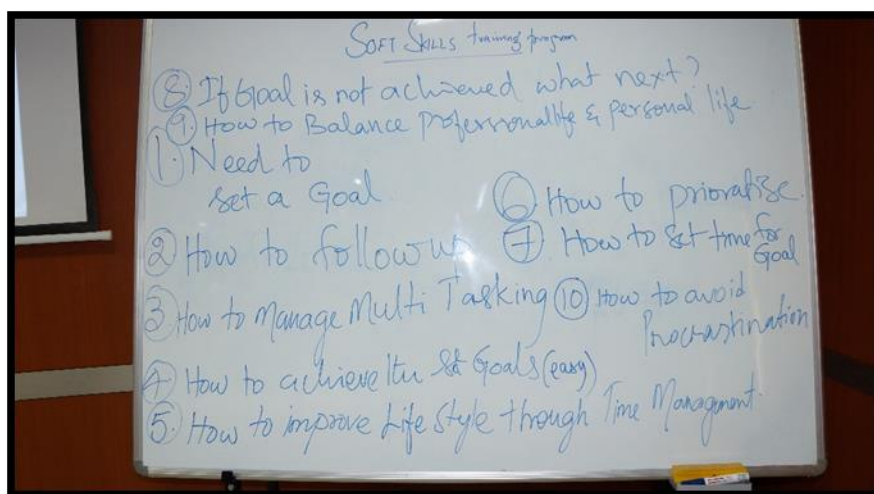 SOFT SKILLS training program
8. If Goal is not achieved what next?
9. How to Balance Professional life & personal life
1. Need to
set a Goal
6 How to prioratise.
2 How to follow up
7. How to set time for
Goal
3 How to Manage Multi Tasking
10 How to avoid
Procrastination
4 How to achieve Goals (easy)
5. How to improve Life Style through Time Managment.